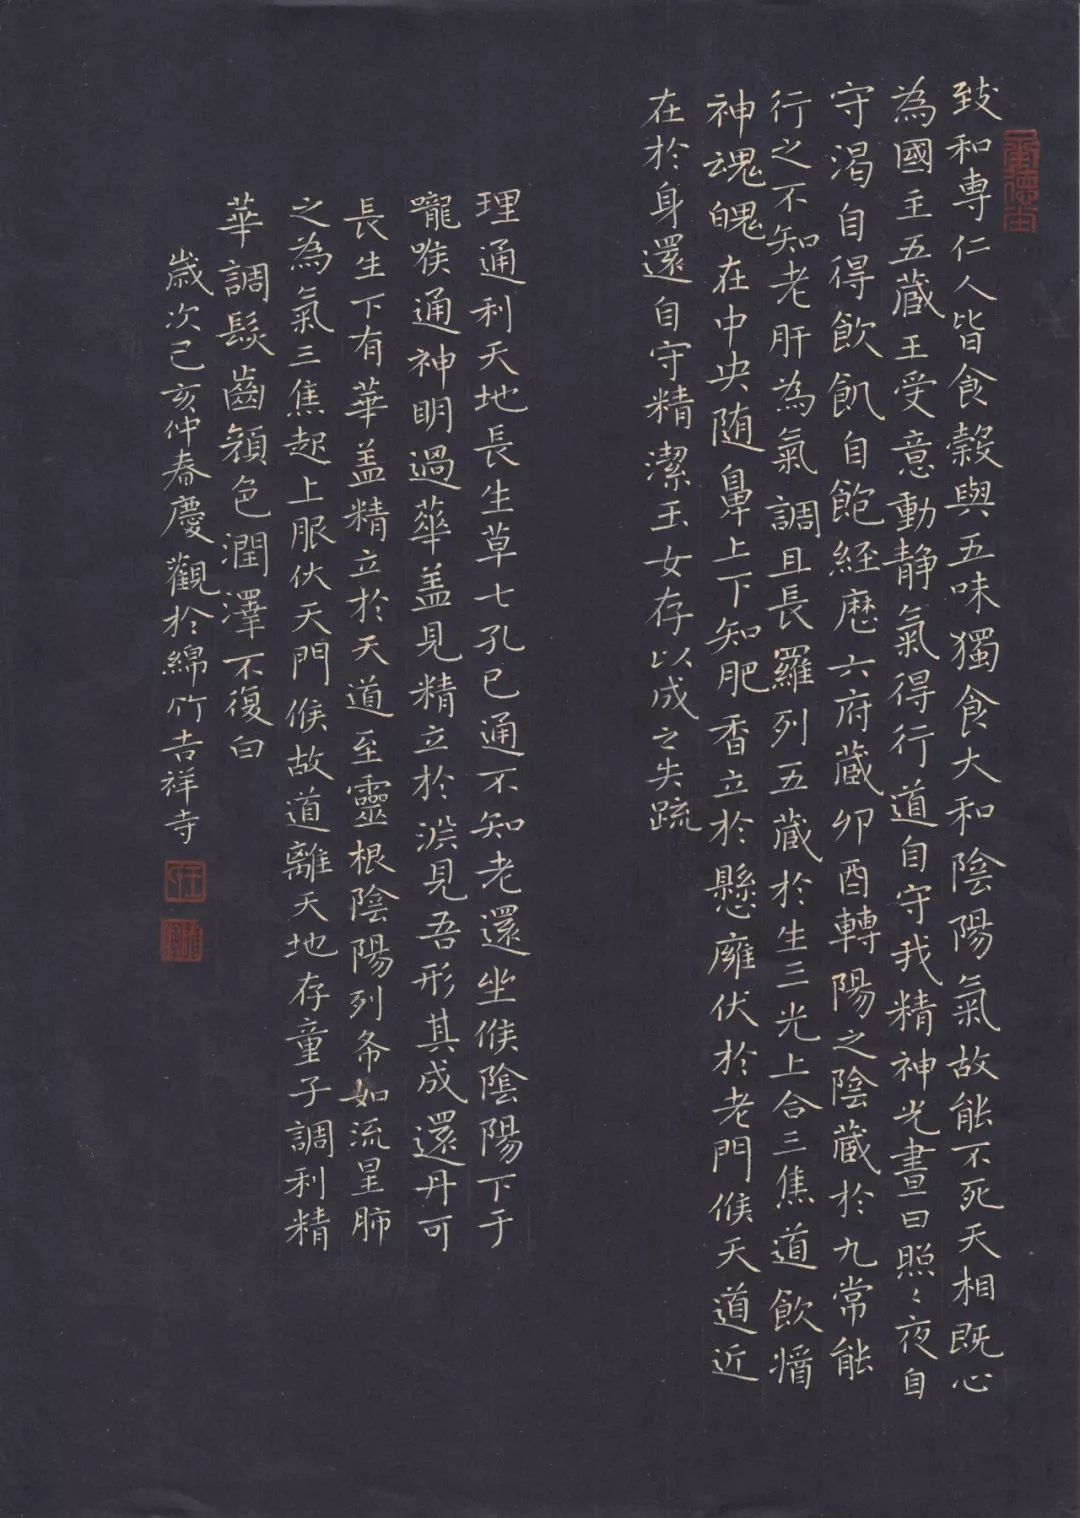 致和専仁人皆食穀與五味獨食大和陰陽氣故能不死天相既心
為國主五藏王受意動静氣得行道自守我精神光晝日照〻夜自
守渴自得飲飢自飽経歷六府藏卯酉轉陽之陰藏於九常能
行之不知老肝為氣調且長羅列五藏於生三光上合三焦道飲
神魂魄在中央随鼻上下知肥香立於懸廱伏於老門候天道近
在於身還自守精潔玉女存以成之失疏
理通利天地長生草七孔已通不知老還坐候陰陽下于
嚨喉通神明過華盖見精立於見吾形其成還丹可
長生下有華盖精立於天道至靈根陰陽列布如流星肺
之為氣三焦起上服伏天門候故道離天地存童子調利精
華調髮齒顔色潤澤不復白
歲次己亥仲春慶觀於綿竹吉祥寺